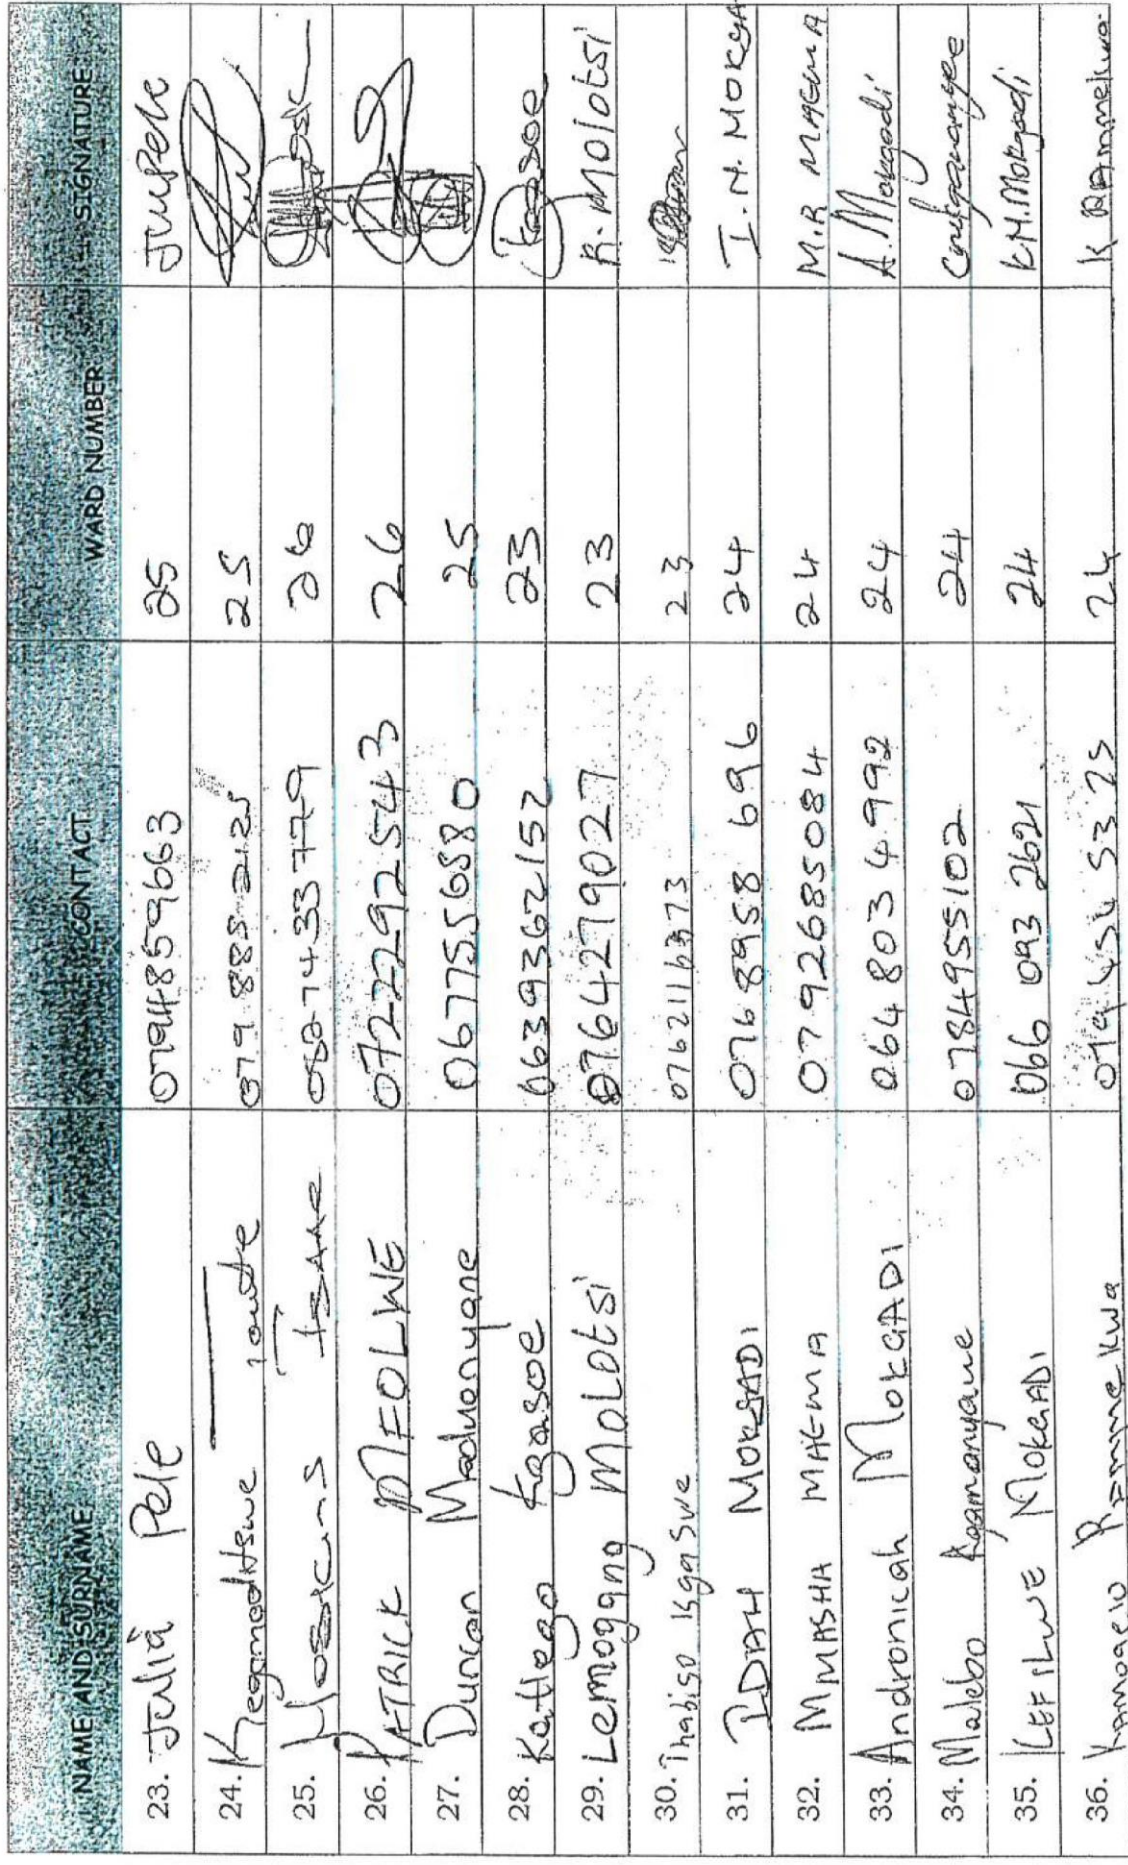 NAME AND SURNAME CONTACT WARD NUMBER SIGNATURE
23. Julia Pele 0794859663 25 JMPele
24. Keamoditswe 079 885 2125 25
25. 0827433779 26
26. PATRICK MFOLWE 0722292543 26
27. Duncan Maduenyane 0677556880 25
28. Katlego Kgasoe 0639362152 23 Kgasoe
29. Lemogang Molotsi 0764279027 23 R. Molotsi
30. Thabiso 23
31. IDAH MOKGADI 076 8958 696 24 I.N. MOKGA
32. MMASHA MAEMA 0792685084 24 M.R MAEMA
33. Andronicah MOKGADI 064 803 4992 24 A. Mokgadi
34. Malebo Kgamanyane 0784955102 24
35. KEFILWE MOKGADI 066 093 2621 24 K.M. Mokgadi
36. Kamogelo Rammekwa 24 K Rammekwa